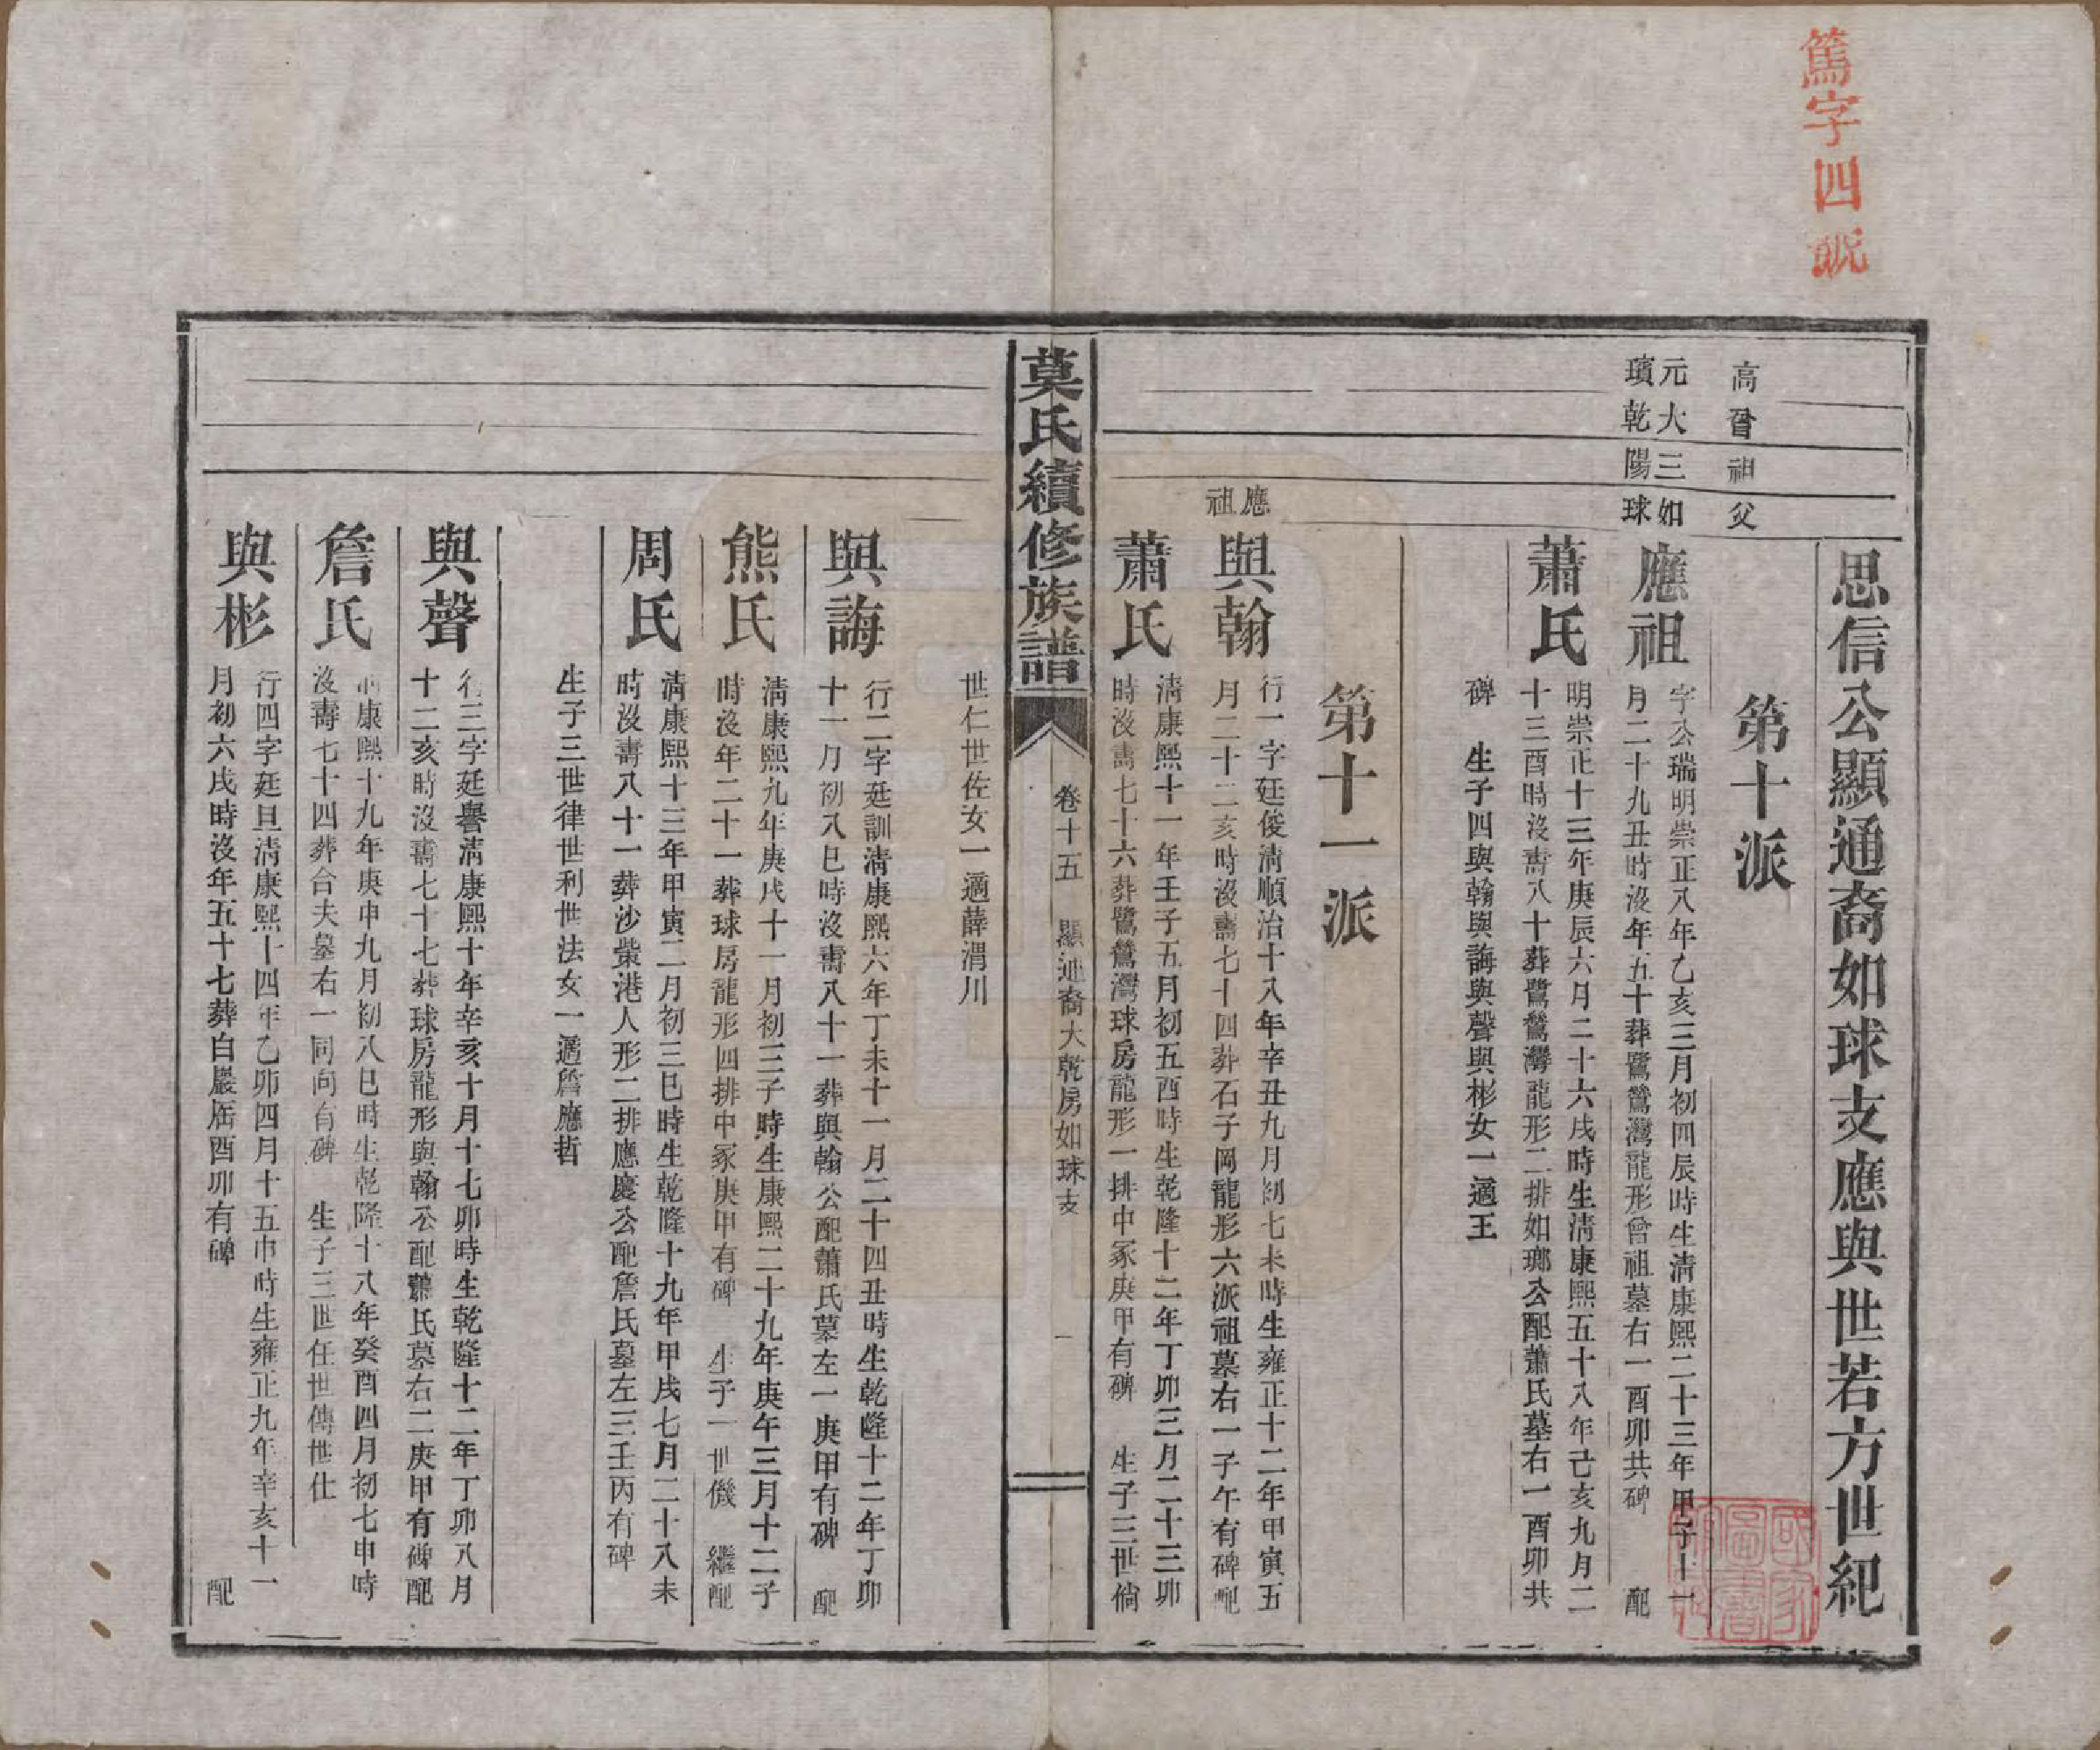 篤字四號
思信公顯通裔如球支應與世若方世紀
高曾祖父
第十派
元大三如
璸乾陽球
應祖
字公瑞明崇正八年乙亥三月初四辰時生清康熙二十三年甲子十一
月二十九丑時沒年五十葬鷺鷥灣龍形曾祖墓右一酉卯共碑　配
蕭氏
明崇正十三年庚辰六月二十六戌時生清康熙五十八年己亥九月二
十三酉時沒壽八十葬鷺鷥灣龍形二排如瑯公配蕭氏墓右一酉卯共
碑　生子四與翰與誨與聲與彬女一適王
第十一派
應
祖
與翰
行一字廷俊清順治十八年辛丑九月初七未時生雍正十二年甲寅五
月二十二亥時沒壽七十四葬石子岡龍形六派祖墓右一子午有碑配
蕭氏
清康熙十一年壬子五月初五酉時生乾隆十二年丁卯三月二十三卯
時沒壽七十六葬鷺鷥灣球房龍形一排中冢庚甲有碑　生子三世倘
莫氏續修族譜
卷十五　顯通裔大乾房如球支
一
世仁世佐女一適薛渭川
與誨
行二字廷訓清康熙六年丁未十一月二十四丑時生乾隆十二年丁卯
十一月初八巳時沒壽八十一葬與翰公配蕭氏墓左一庚甲有碑　配
熊氏
清康熙九年庚戌十一月初三子時生康熙二十九年庚午三月十二子
時沒年二十一葬球房龍形四排中冢庚甲有碑　生子一世機　繼配
周氏
清康熙十三年甲寅二月初三巳時生乾隆十九年甲戌七月二十八未
時沒壽八十一葬沙柴港人形二排應慶公配詹氏墓左三壬丙有碑
生子三世律世利世法女一適詹應哲
與聲
行三字廷譽清康熙十年辛亥十月十七卯時生乾隆十二年丁卯八月
十二亥時沒壽七十七葬球房龍形與翰公配蕭氏墓右二庚甲有碑配
詹氏
清康熙十九年庚申九月初八巳時生乾隆十八年癸酉四月初七申時
沒壽七十四葬合夫墓右一同向有碑　生子三世任世傳世仕
與彬
行四字廷旦清康熙十四年乙卯四月十五巾時生雍正九年辛亥十一
月初六戌時沒年五十七葬白嚴厝酉卯有碑　配